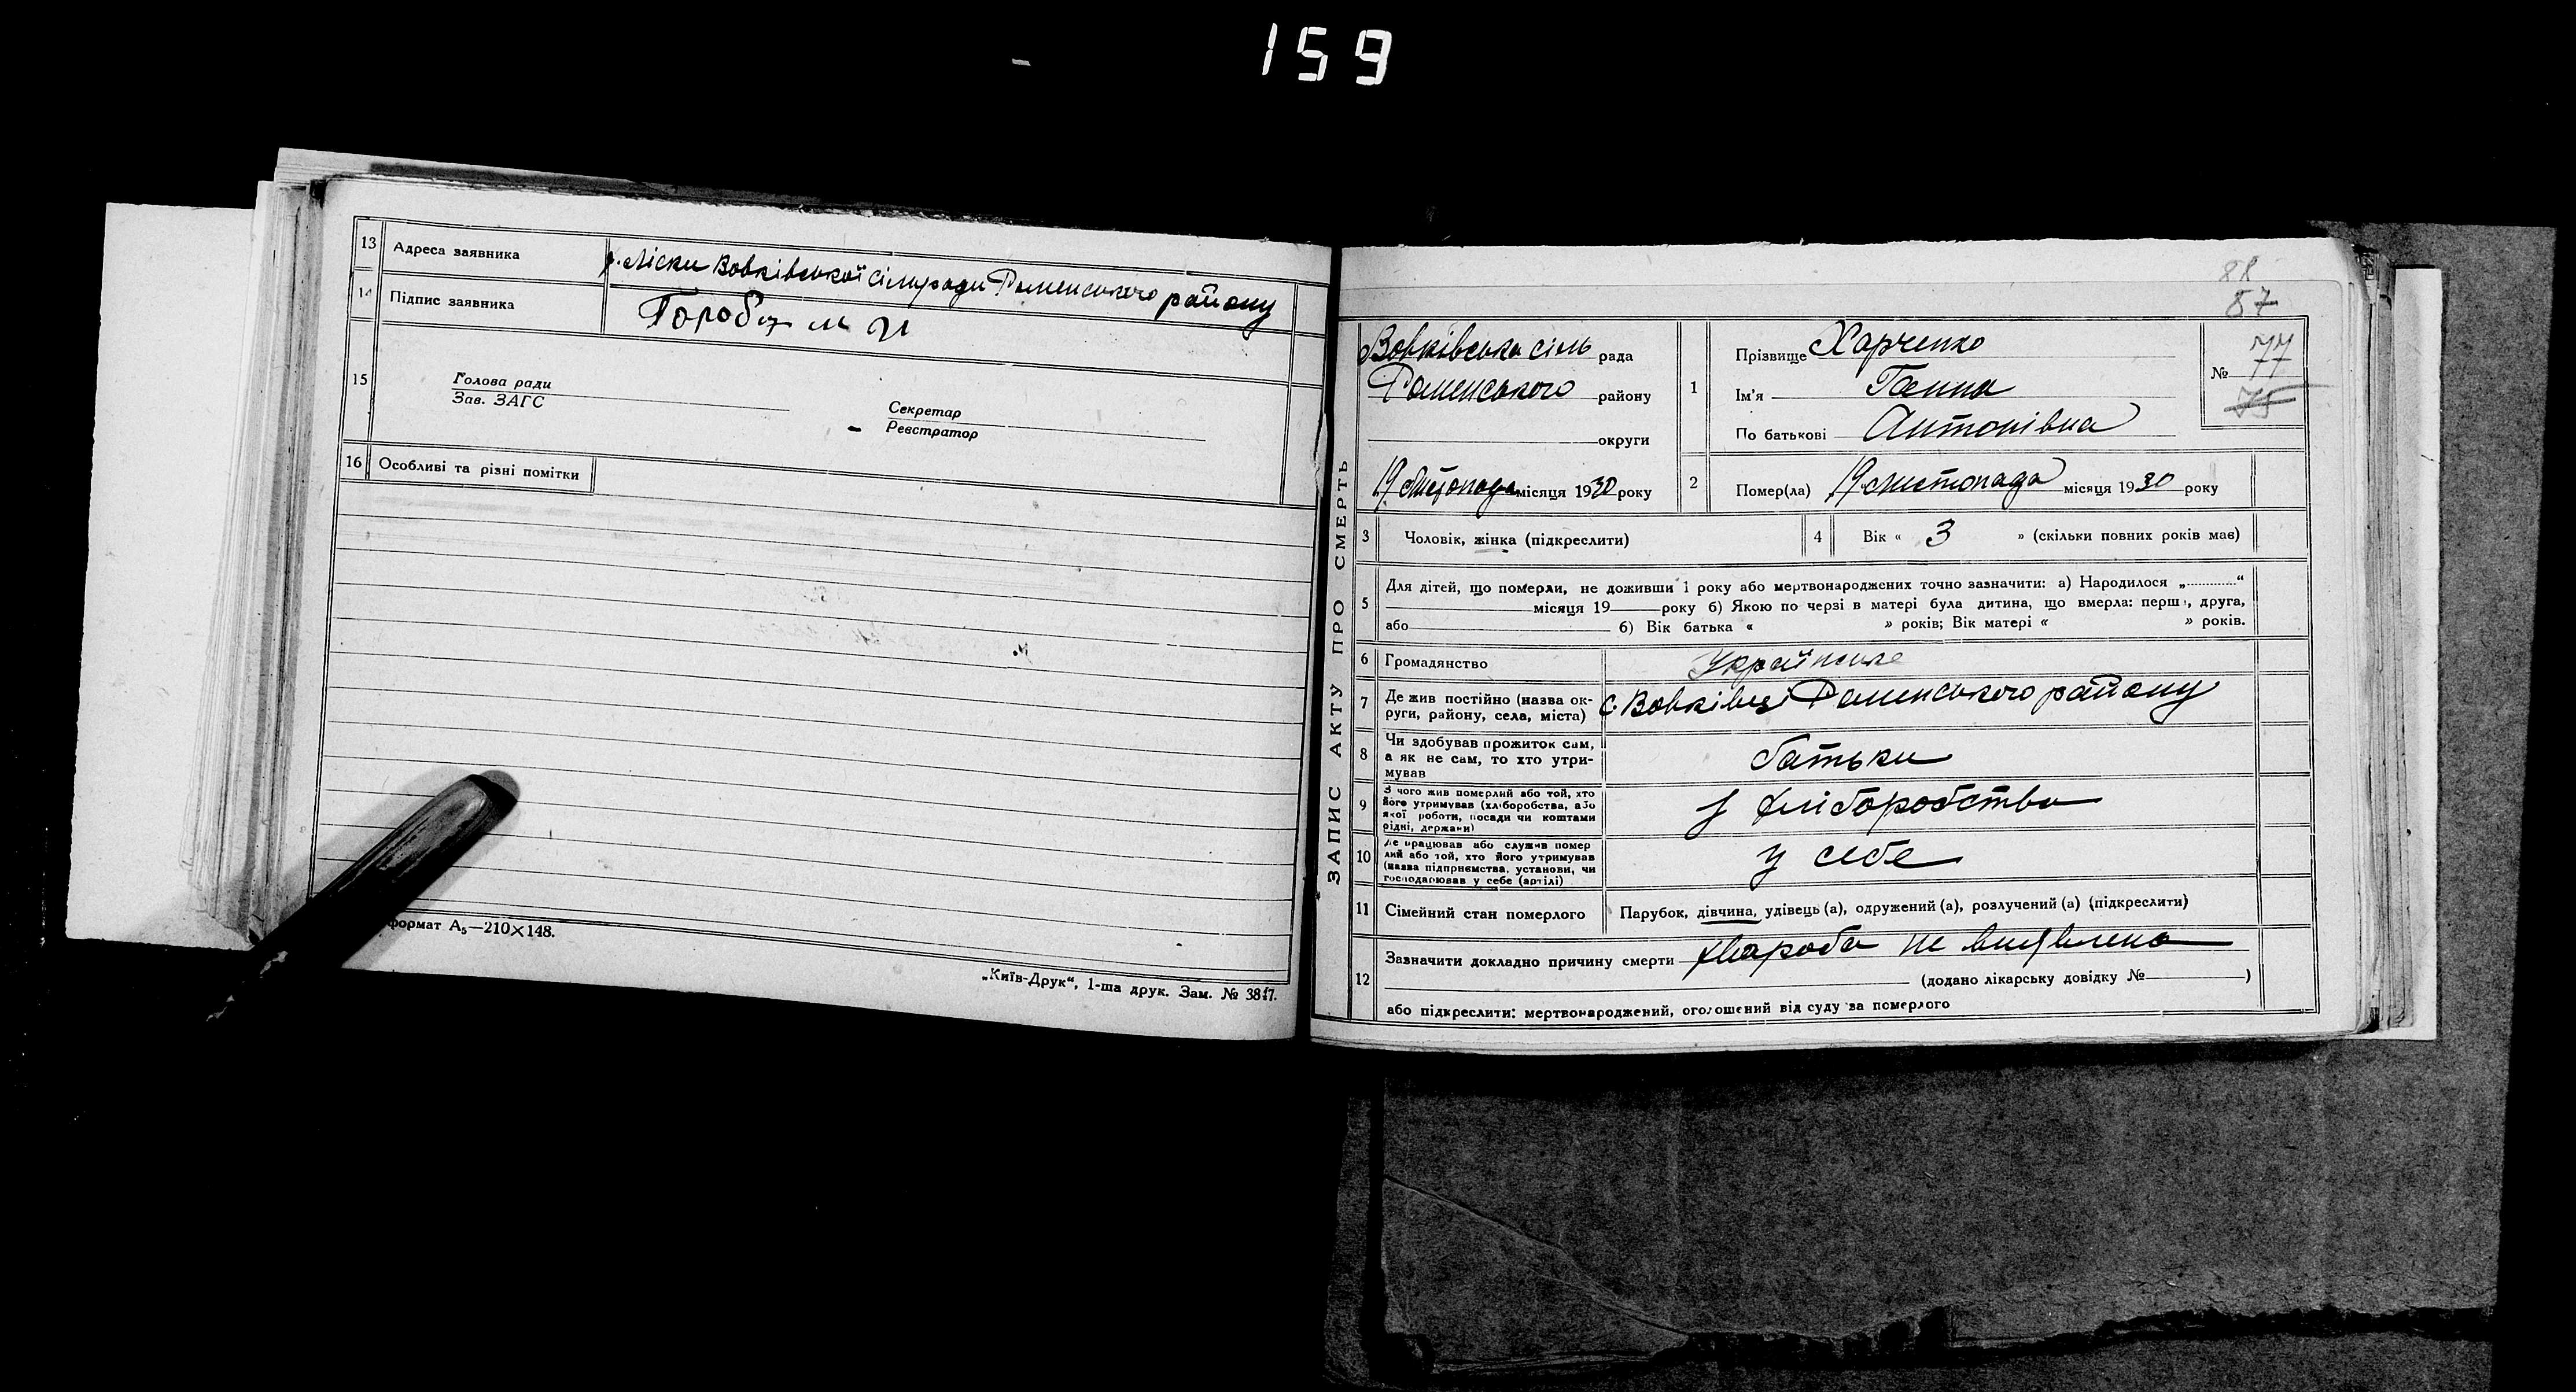 159
13 Адреса заявника х. Ліски Вовківської сільради Роменського району
14 Підпис заявника Горобц М И
15 Голова ради
Зав. ЗАГС
Секретар
Реєстратор
16 Особливі та різні помітки
формат А5—210×148.
„Київ-Друк“, 1-ша друк. Зам. № 3817.
88
87
ЗАПИС АКТУ ПРО СМЕРТЬ
Вовківська сіль рада
Роменського району
округи
19 листопада місяця 1930 року
1 Прізвище Харченко
Ім'я Ганна
По батькові Антонівна
№ 77
77
75
2 Помер(ла) 19 листопада місяця 1930 року
3 Чоловік, жінка (підкреслити)
4 Вік « 3 » (скільки повних років має)
5 Для дітей, що померли, не доживши 1 року або мертвонароджених точно зазначити: а) Народилося „ “
місяця 19 року б) Якою по черзі в матері була дитина, що вмерла: перша, друга,
або б) Вік батька « » років; Вік матері « » років.
6 Громадянство Українське
7 Де жив постійно (назва ок-
руги, району, села, міста) с. Вовківці Роменського району
8 Чи здобував прожиток сам,
а як не сам, то хто утри-
мував батьки
9 З чого жив померлий або той, хто
його утримував (хліборобства, або
якої роботи, посади чи коштами
рідні, держави) з хліборобства
10 Де працював або служив помер
лий або той, хто його утримував
(назва підприємства, установи, чи
господарював у себе (артілі) у себе
11 Сімейний стан померлого Парубок, дівчина, удівець (а), одружений (а), розлучений (а) (підкреслити)
12 Зазначити докладно причину смерти хвароба не виявлена
(додано лікарську довідку № )
або підкреслити: мертвонароджений, оголошений від суду за померлого